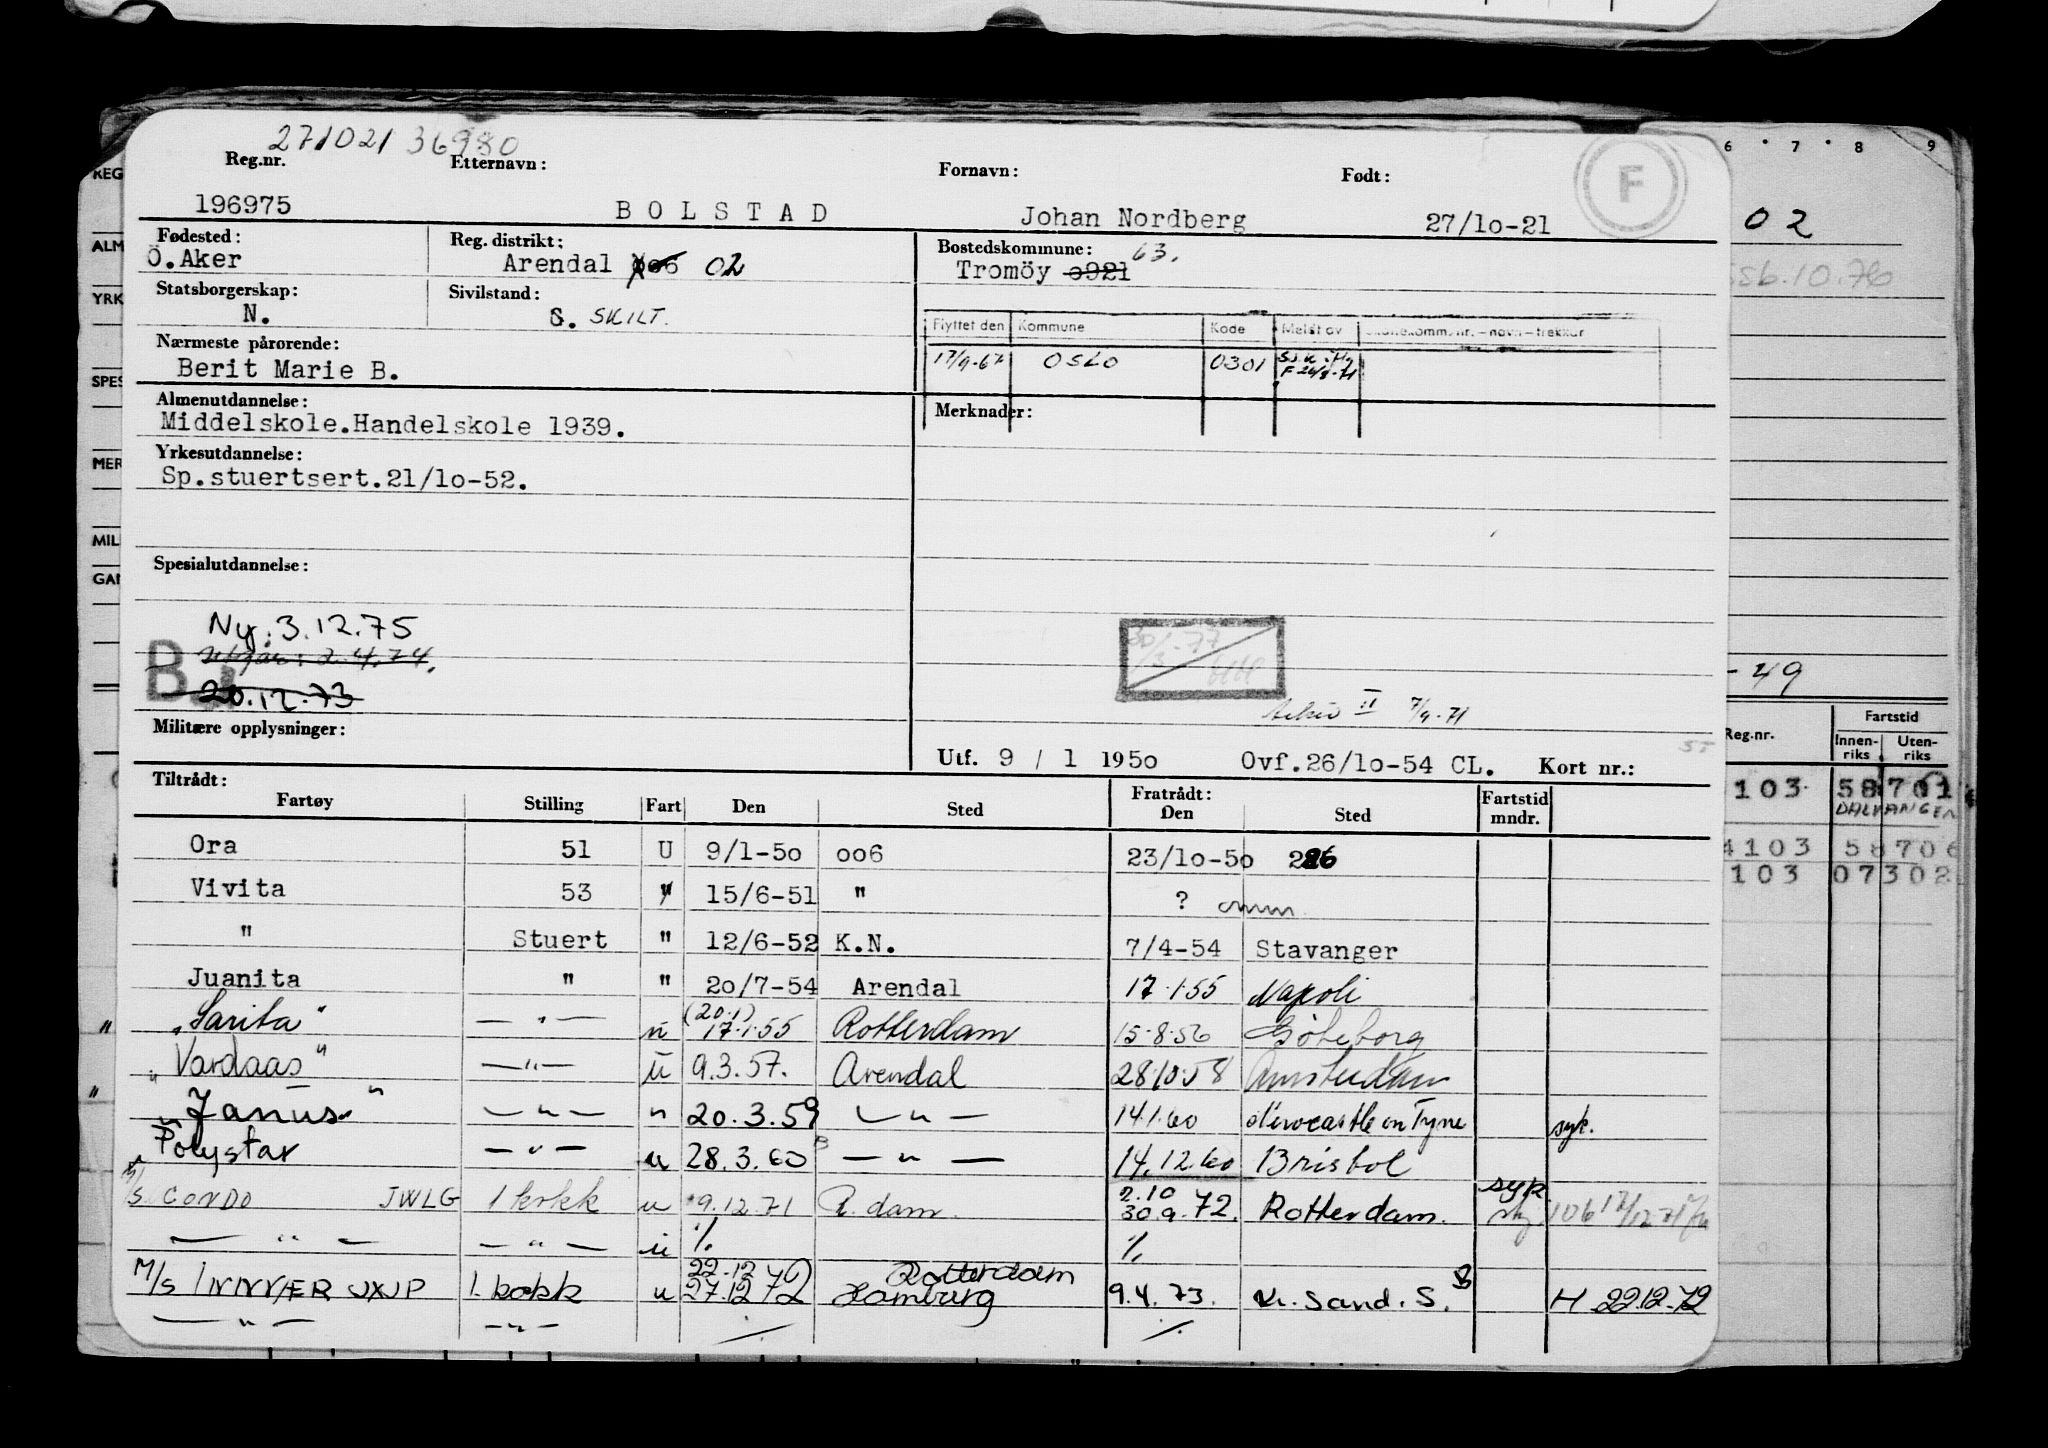 271021 36980
Reg.nr. Etternavn: Fornavn: Født: F
196975 BOLSTAD Johan Nordberg 27/10-21
Fødested: Reg. distrikt: Bostedskommune: 63.
Ö.Aker Arendal 006 02 Tromöy 0921
Statsborgerskap: Sivilstand:
N. S. SKILT.
Flyttet den Kommune Kode Meldt av
Nærmeste pårørende:
Berit Marie B.
17/9-67 OSLO 0301
Almenutdannelse: Merknader:
Middelskole.Handelskole 1939.
Yrkesutdannelse:
Sp.stuertsert.21/10-52.
Spesialutdannelse:
Ny: 3.12.75
utgår: 2.4.74.
BJ
20.12.73
30/3-77
Arkiv II 7/9-71
Militære opplysninger:
Utf. 9 / 1 1950 Ovf.26/10-54 CL. Kort nr.:
Tiltrådt: Fratrådt:
Fartøy Stilling Fart Den Sted Den Sted Fartstid mndr.
Ora 51 U 9/1-50 006 23/10-50
Vivita 53 " 15/6-51 " ?
" Stuert " 12/6-52 K.N. 7/4-54 Stavanger
Juanita " " 20/7-54 Arendal 17.1.55 Napoli
" "Sarita" — " — u (20.1) 17.1.55 Rotterdam 15.8.56 Göteborg
"Vardaas" — " — u 9.3.57. Arendal 28.10.58 Amsterdam
" "Janus" — " — " 20.3.59 — " — 14.1.60 Newcastle on Tyne syk.
"Polystar — " — u 28.3.60 — " — 14.12.60 Bristol
M/S CONDO JWLG 1 kokk u 9.12.71 R.dam. 2.10 30.9.72. Rotterdam. syk
— " — — " — u % %
M/S INNVÆR JXJP 1. kokk u 22.12 27.12 72 Rotterdam Hamburg 9.4.73. Kr. Sand. S. H 22.12.72
— " — — " — % %
REG
ALM
YRK
SPES
MER
MIL
GAN
6 7 8 9
02
-49
Reg.nr. Fartstid
Innen-riks Uten-riks
103 58701
DALVANGEN
4103 58706
103 07302